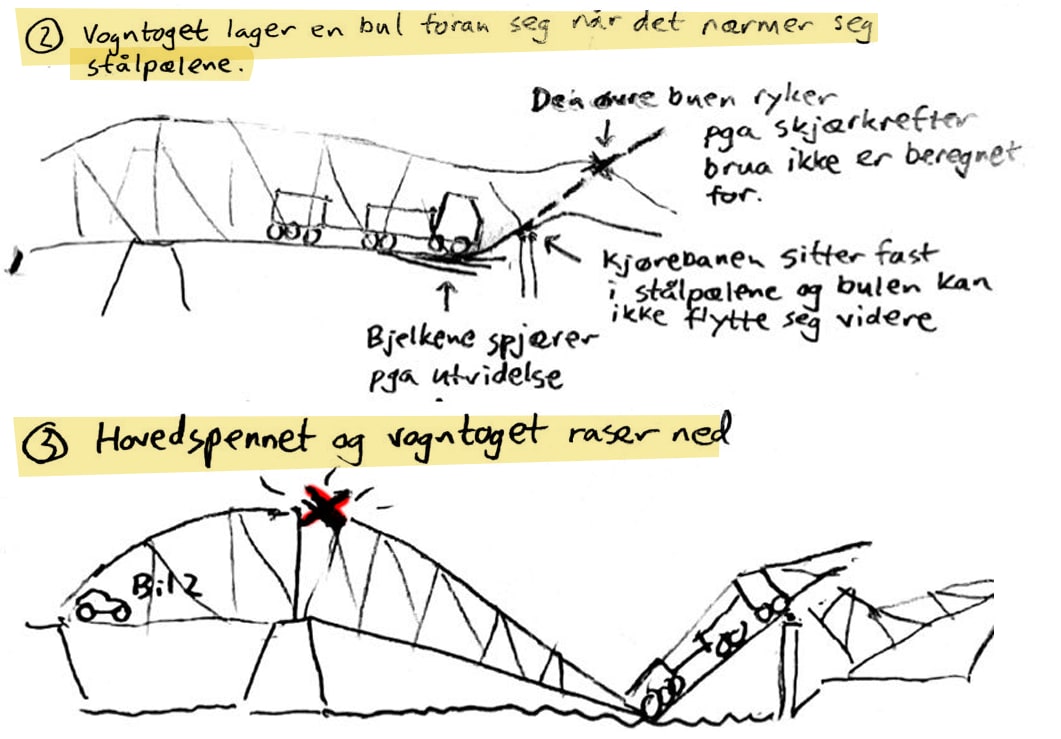 ② Vogntoget lager en bul foran seg når det nærmer seg
stålpælene.
Den øvre buen ryker
pga skjærkrefter
brua ikke er beregnet
for.
Kjørebanen sitter fast
i stålpælene og bulen kan
ikke flytte seg videre
Bjelkene spjærer
pga utvidelse
③ Hovedspennet og vogntoget raser ned
Bil 2